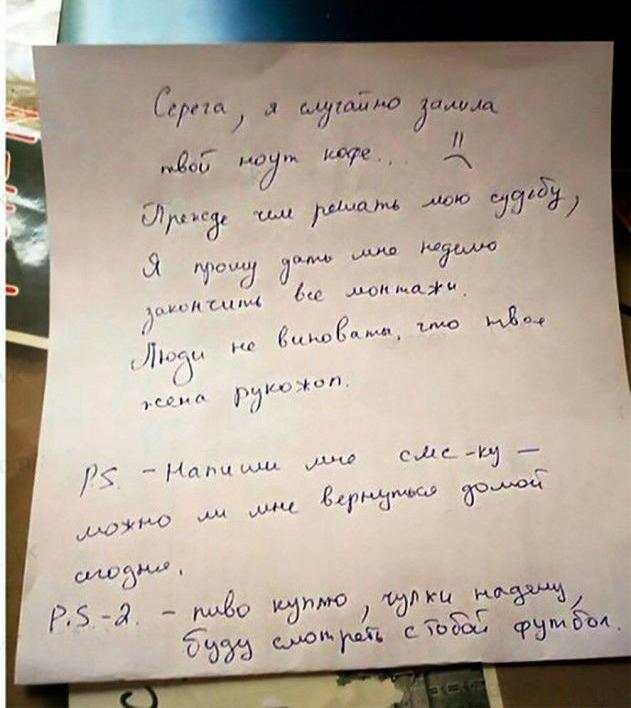 Серега, я случайно залила
твой ноут кофе...
Прежде чем решать мою судьбу,
Я прошу дать мне неделю
закончить все монтажи.
Люди не виноваты, что твоя
жена рукожоп.
PS. - Напиши мне смс-ку -
можно ли мне вернуться домой
сегодня.
P.S.-2. - пиво куплю, чулки надену,
буду смотреть с тобой футбол.